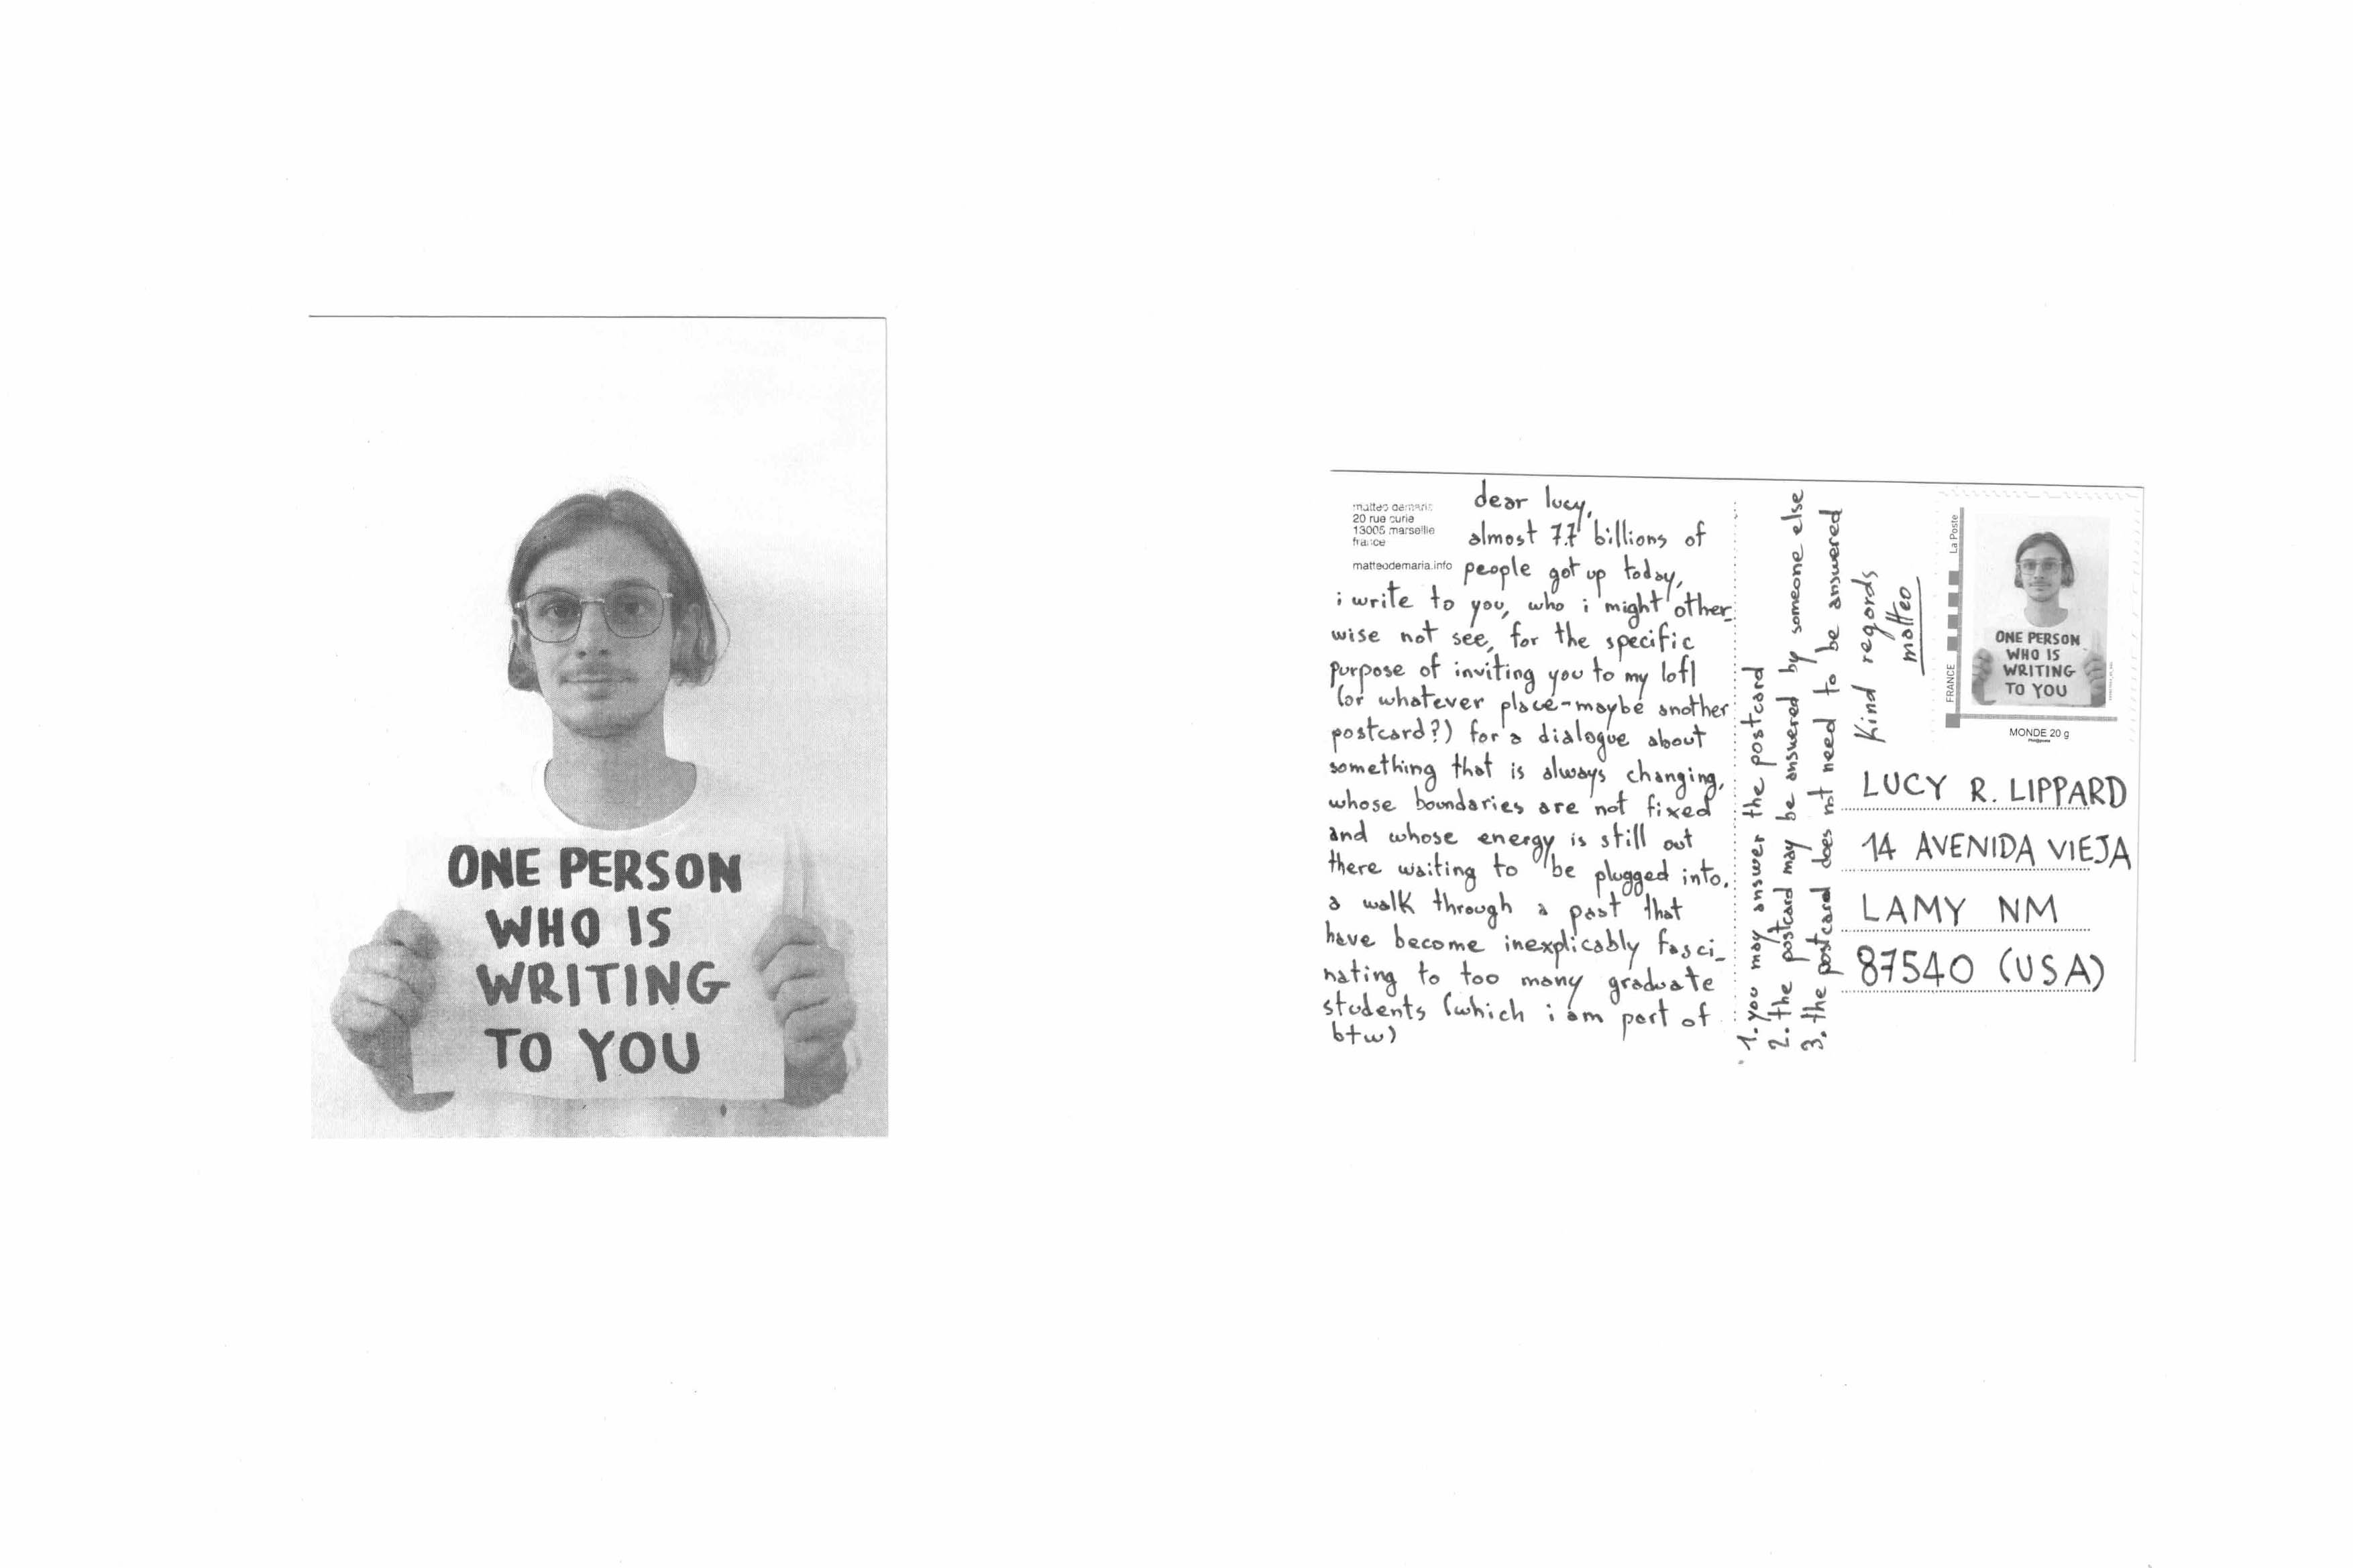 ONE PERSON
WHO IS
WRITING
TO YOU
matteo demaria
20 rue curie
13005 marseille
france
matteodemaria.info
dear lucy,
almost 7.7 billions of
people got up today,
i write to you, who i might other_
wise not see, for the specific
purpose of inviting you to my loft
(or whatever place-maybe another
postcard?) for a dialogue about
something that is always changing,
whose boundaries are not fixed
and whose energy is still out
there waiting to be plugged into.
a walk through a past that
have become inexplicably fasci_
nating to too many graduate
students (which i am part of
btw)
1. you may answer the postcard
2. the postcard may be answered by someone else
3. the postcard does not need to be answered
Kind regards
matteo
FRANCE
La Poste
ONE PERSON
WHO IS
WRITING
TO YOU
MONDE 20 g
LUCY R. LIPPARD
14 AVENIDA VIEJA
LAMY NM
87540 (USA)